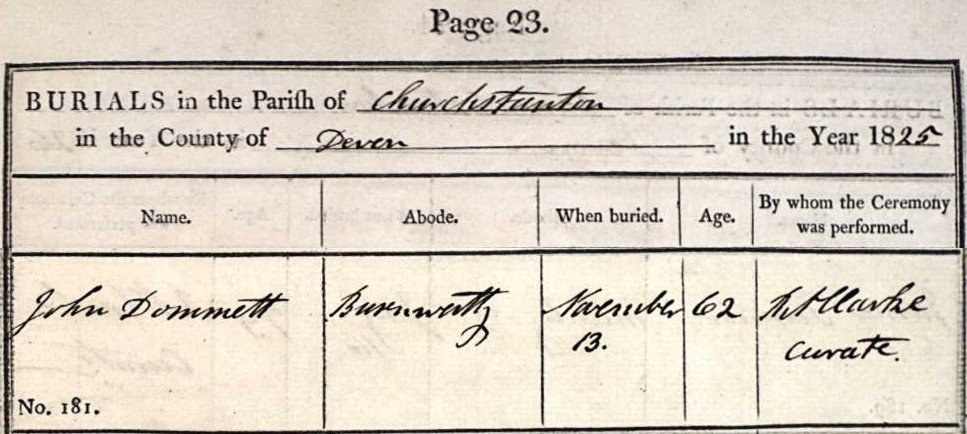 Page 23.
BURIALS in the Parish of Churchstanton
in the County of Devon in the Year 1825
Name. Abode. When buried. Age. By whom the Ceremony was performed.
John Dommett Burnworthy November 62 Clarke
13. Curate.
No. 181.